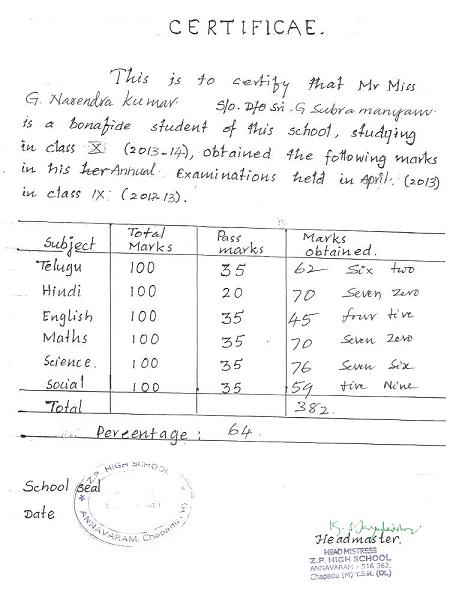 CERTIFICAE.
This is to certify that Mr Miss
G. Narendra Kumar S/o. D/o Sri. G Subramanyam
is a bonafide student of this school, studying
in class X (2013-14), obtained the following marks
in his her Annual Examinations held in April (2013)
in class IX: (2012-13).
Subject Total Marks Pass marks Marks obtained.
Telugu 100 35 62 Six two
Hindi 100 20 70 Seven Zero
English 100 35 45 four five
Maths 100 35 70 Seven Zero
Science. 100 35 76 Seven Six
Social 100 35 59 five Nine
Total 382.
Percentage: 64.
Z.P. HIGH SCHOOL
School seal
Date
ANNAVARAM, Chapadu (M)
Headmaster.
HEAD MISTRESS
Z.P. HIGH SCHOOL
ANNAVARAM - 516 362.
Chapadu (M) Y.S.R. (Dt.)